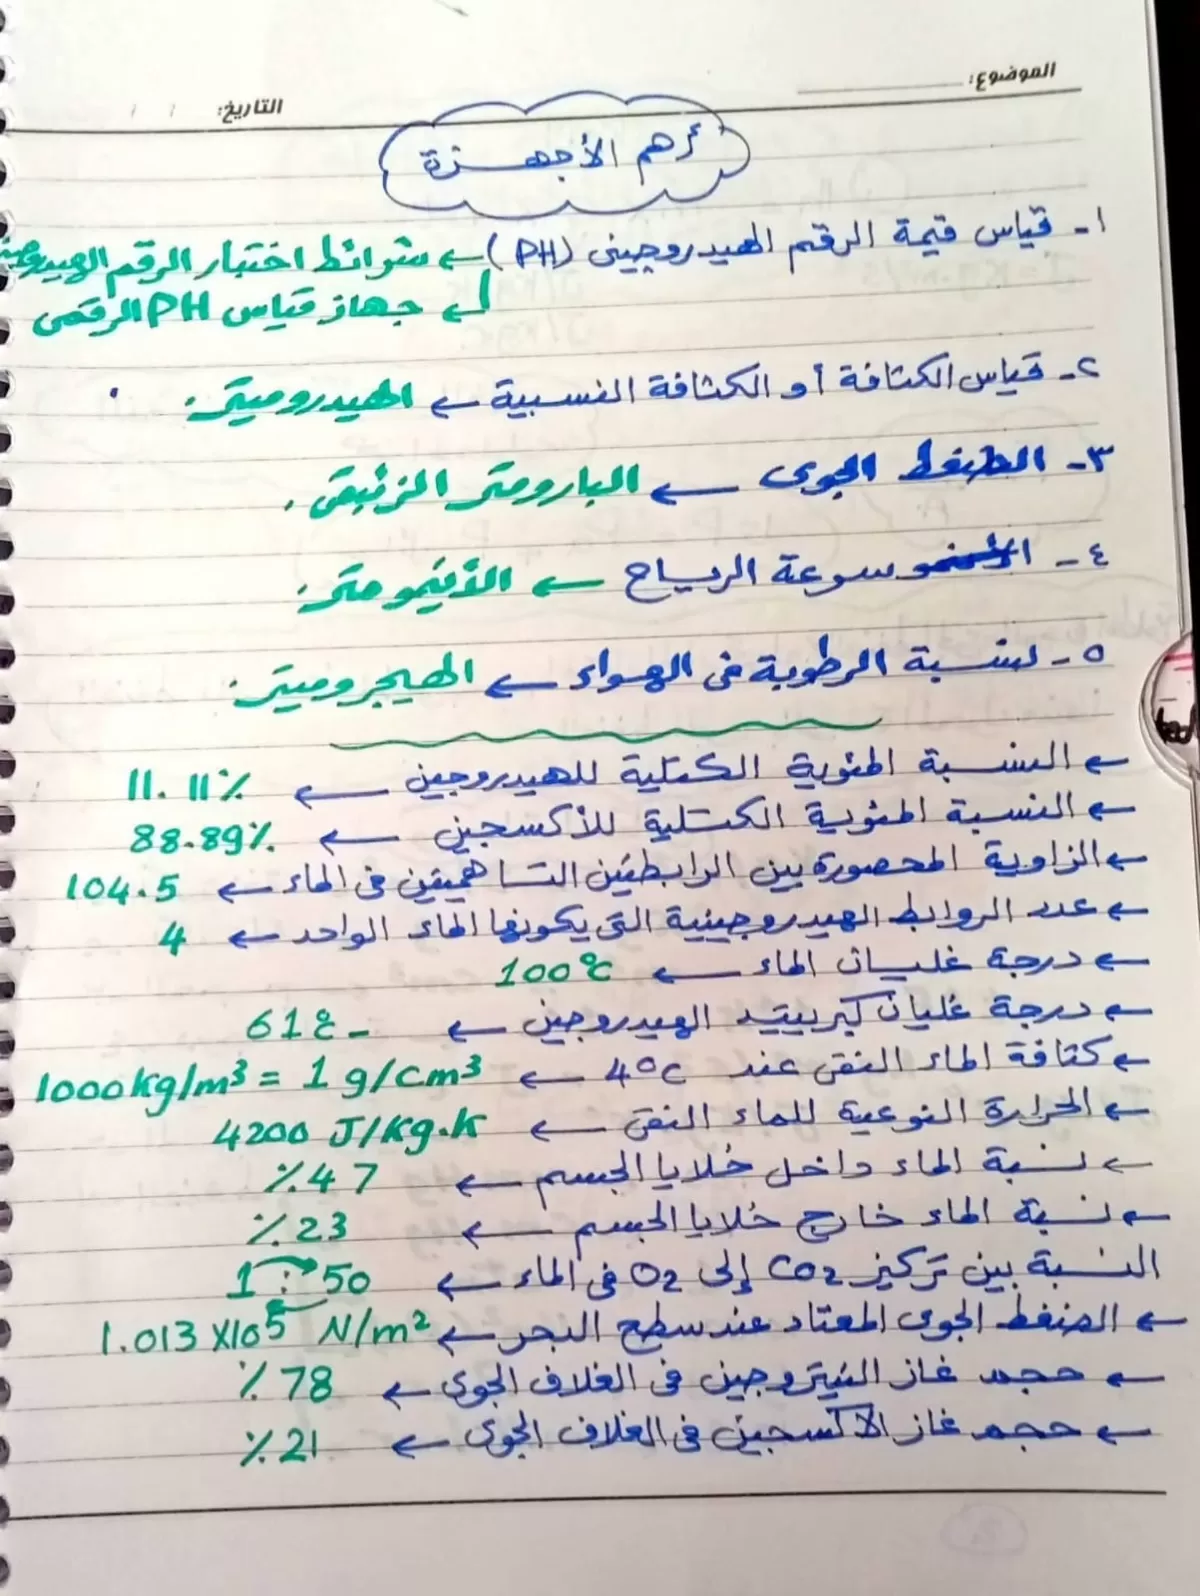 الموضوع:
التاريخ: / /
أهم الأجهزة
١- قياس قيمة الرقم الهيدروجينى (PH) ← شرائط اختبار الرقم الهيدروجينى
← جهاز قياس PH الرقمى
٢- قياس الكثافة أو الكثافة النسبية ← الهيدروميتر.
٣- الضغط الجوى ← البارومتر الزئبقى.
٤- سرعة الرياح ← الأنيمومتر.
٥- نسبة الرطوبة فى الهواء ← الهيجروميتر.
← النسبة المئوية الكتلية للهيدروجين ← 11.11٪
← النسبة المئوية الكتلية للأكسجين ← 88.89٪
← الزاوية المحصورة بين الرابطتين التساهميتين فى الماء ← 104.5
← عدد الروابط الهيدروجينية التى يكونها الماء الواحد ← 4
← درجة غليان الماء ← 100°C
← درجة غليان كبريتيد الهيدروجين ← - 61°C
← كثافة الماء النقى عند 4°C ← 1000kg/m³ = 1 g/cm³
← الحرارة النوعية للماء النقى ← 4200 J/Kg.K
← نسبة الماء داخل خلايا الجسم ← 47٪
← نسبة الماء خارج خلايا الجسم ← 23٪
النسبة بين تركيز CO₂ إلى O₂ فى الماء ← 1 : 50
← الضغط الجوى المعتاد عند سطح البحر ← 1.013 X10⁵ N/m²
← حجم غاز النيتروجين فى الغلاف الجوى ← 78٪
← حجم غاز الأكسجين فى الغلاف الجوى ← 21٪